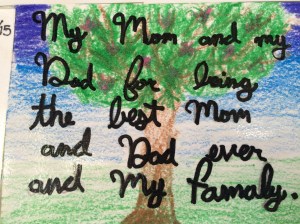 15
My Mom and my
Dad for being
the best Mom
and Dad ever
and My Famaly.